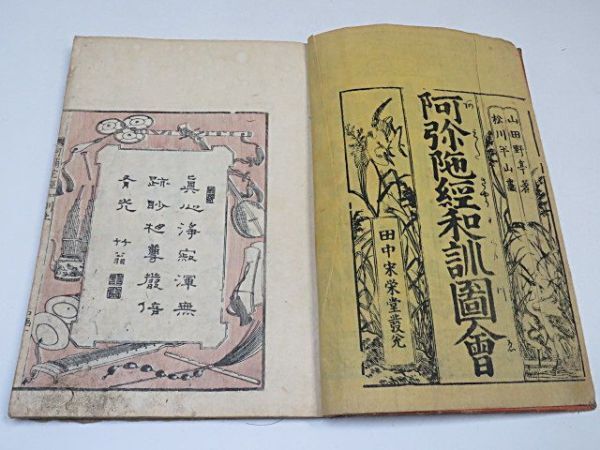 山田野亭著
松川半山畫
阿弥陁經和訓圖會
田中宋榮堂發兌
眞心淨寂渾無
跡眇尊嚴倍
有光
竹翁